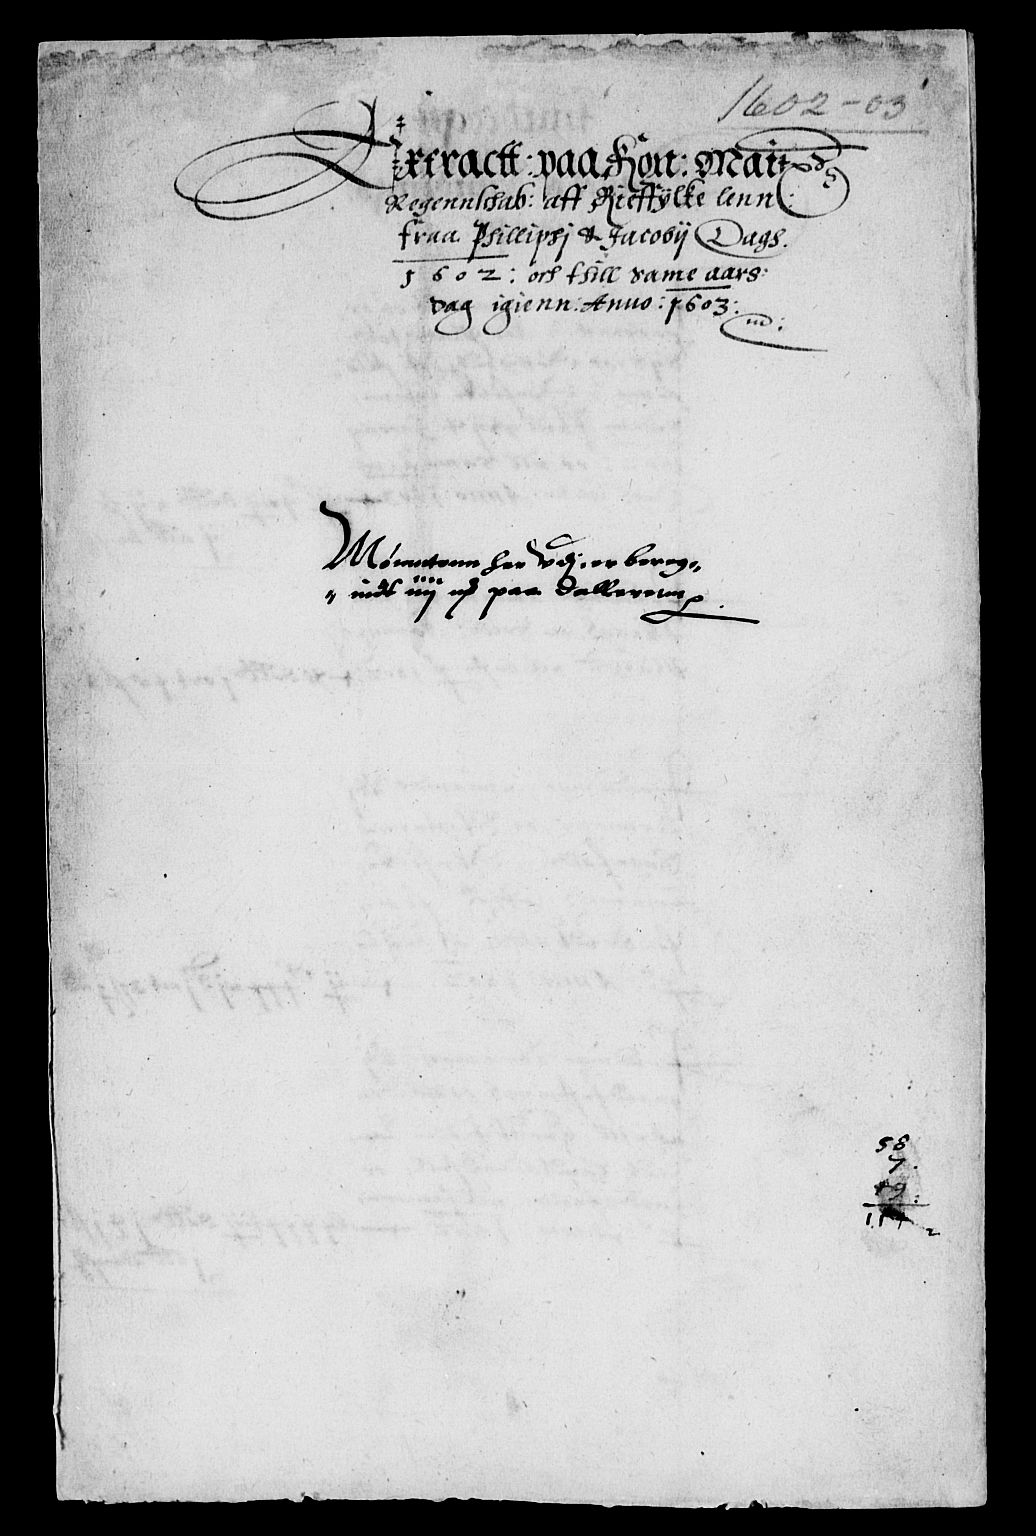 1602-03
Extractt: paa Kon: Maitt:
Regennschab: aff Rieffylke lenn:
fraa Philliphj & Jacobij Dags.
1602: och thill same aars
dag igienn: Anno: 1603:
Mønntenn her vdj er bereg„
„ indt iiij ... paa dallerenn
58
7.